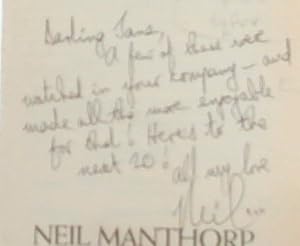 Darling Jane,
A few of these were
watched in your company - and
made all the more enjoyable
for that! Here's to the
next 20! All my love
Neil...
NEIL MANTHORP